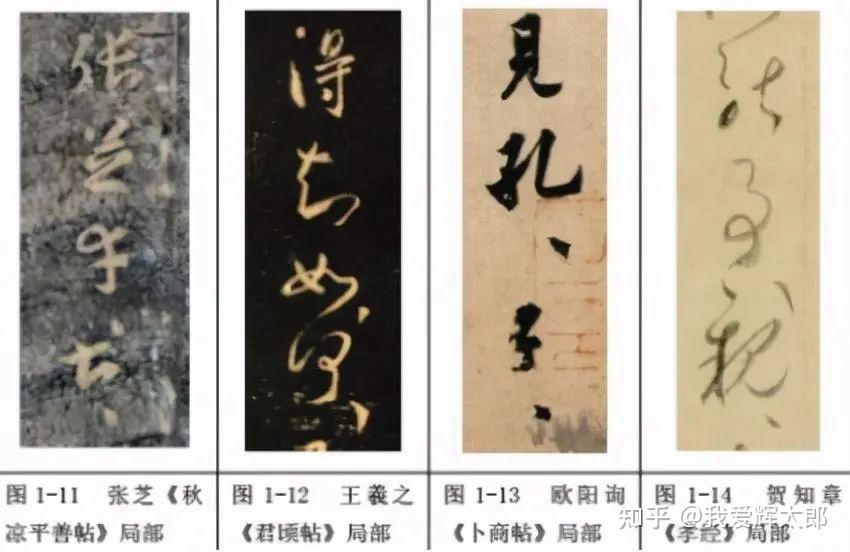 張芝
得
見孔、子、
事親、
图 1-11 张芝《秋
凉平善帖》局部
图 1-12 王羲之
《君顷帖》局部
图 1-13 欧阳询
《卜商帖》局部
图 1-14 贺知章
《孝经》局部
知乎 @我爱辉太郎